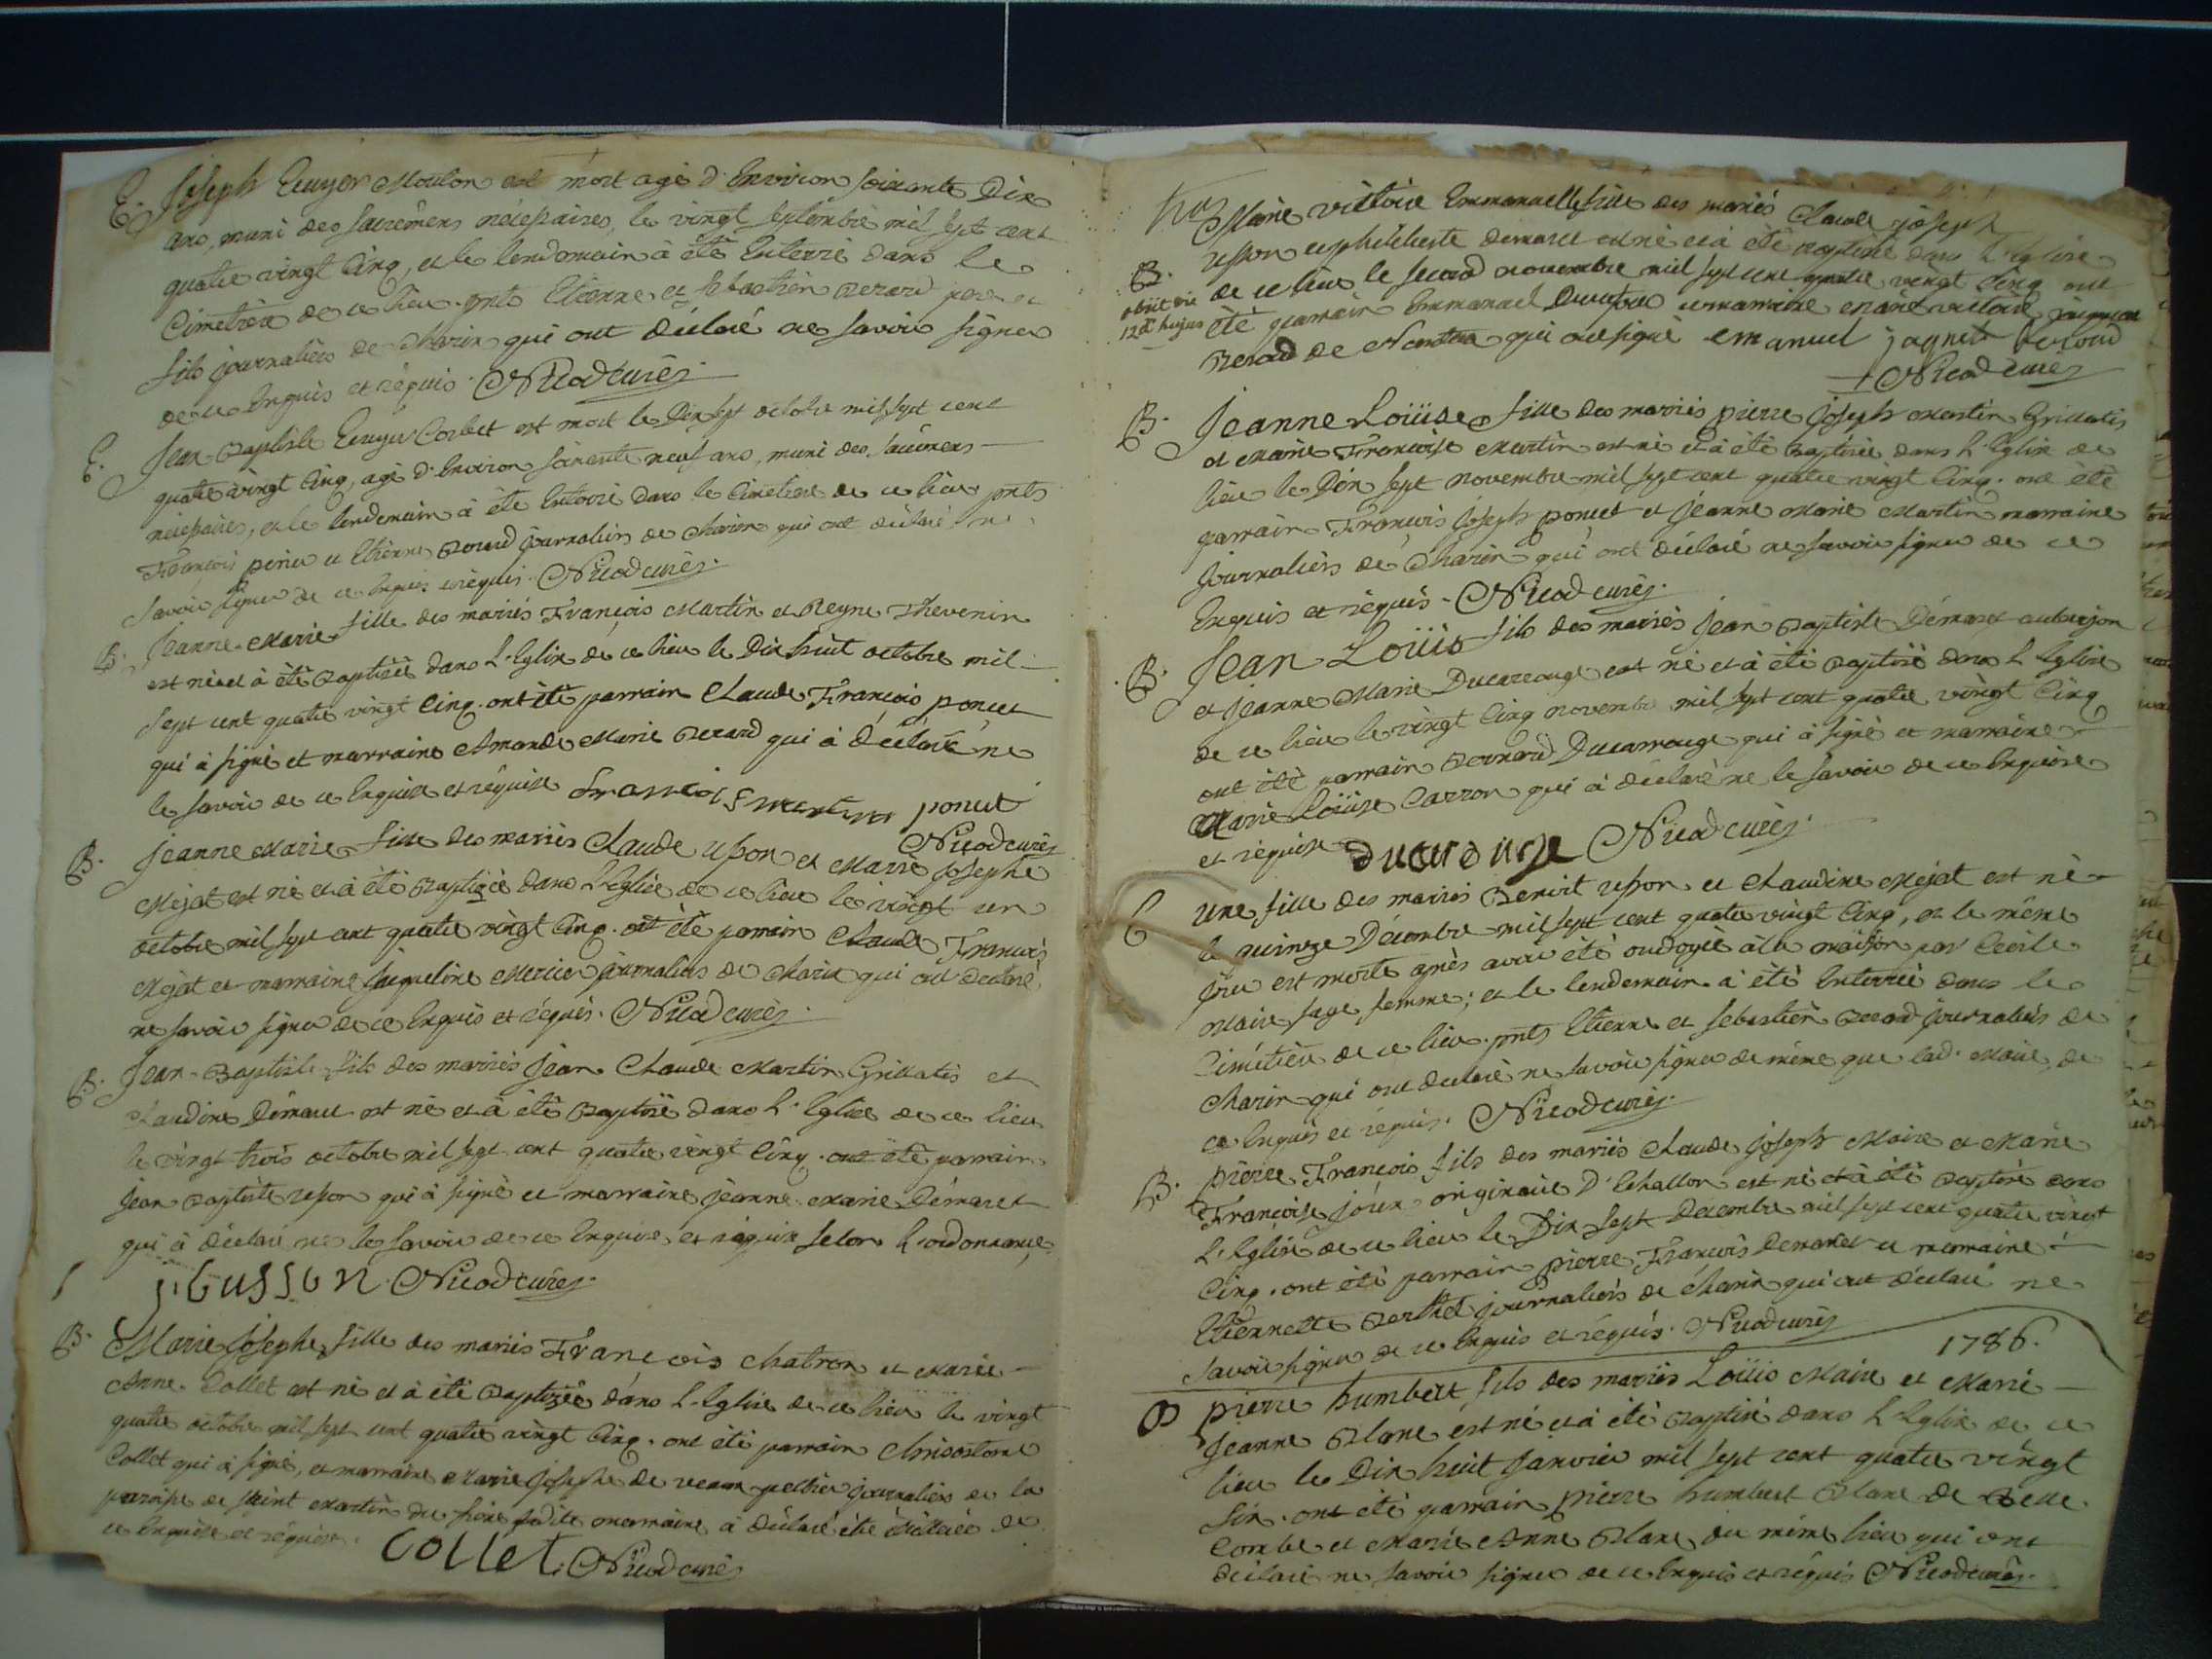 E. Joseph Ecuyer Mouton est mort agé d'Environ soixante Dix
ans, muni des sacrémens nécessaires, le vingt septembre mil sept cent
quatre vingt Cinq, et le lendemain à été Enterré dans le
Cimetière de ce lieu. pnts Etienne et sebastien Berard pere et
fils journaliers de Charix qui ont déclaré ne savoir signer
de ce Enquis et réquis. Nicod curé
E. Jean Baptiste Ecuyer Corbet est mort le Dix sept octobre mil sept cent
quatre vingt Cinq, agé d'Environ soixante neuf ans, muni des sacrémens
nécessaires, et le lendemain à été Enterré dans le Cimetiere de ce lieu pnts
François perier et Etienne Berard journaliers de Charix qui ont déclaré ne
savoir signer de ce Enquis et réquis. Nicod curé.
B. Jeanne Marie fille des mariés François Martin et Reyne Thevenin
est né et à été Baptisée dans L'Eglise de ce lieu le Dix huit octobre mil
sept cent quatre vingt Cinq. ont été parrain Claude François poncet
qui à signé et marraine Amande Marie Berard qui à déclaré ne
le savoir de ce Enquise et réquise francois martin poncet
Nicod curé
B. Jeanne Marie fille des mariés Claude usson et Marie Josephe
Méjat est né et à été Baptisée dans L'Eglise de ce lieu le vingt un
octobre mil sept cent quatre vingt Cinq. ont été parrain Claude François
Méjat et marraine Jaqueline Mercier journaliers de Charix qui ont declaré
ne savoir signer de ce Enquis et réquis. Nicod curé.
B. Jean-Baptiste fils des mariés Jean Claude Martin Grillatis et
Claudine Démaret est né et à été Baptisé dans L'Eglise de ce lieu
le vingt trois octobre mil sept cent quatre vingt Cinq. ont été parrain
Jean Baptiste usson qui à signé et marraine jeanne Marie Démaret
qui à déclaré ne le savoir de ce Enquise et réquise selon L'ordonnance
j. b usson Nicod curé.
B. Marie Josephe fille des mariés François Chatron et Marie
Anne Collet est né et à été Baptisée dans L'Eglise de ce lieu le vingt
quatre octobre mil sept cent quatre vingt Cinq. ont été parrain Chrisostome
Collet qui à signé, et marraine Marie Josephe de veaux journaliers de la
parroisse de saint Martin du frêne ladite marraine à déclaré être illiterée de
ce Enquise et réquise. Collet Nicod curé
Marie vittoire Emmanuelle fille des mariés Claude joseph
usson et philiberte demaret est né et à été Baptisée dans L'Eglise
B. de ce lieu le second novembre mil sept cent quatre vingt Cinq ont
obiit die
12ª hujus
été parrain Emmanuel et marraine
Berod de Nantua qui ont signé emanuel
Nicod curé
B. Jeanne Loüise fille des mariés pierre Joseph Martin Grillatis
et Marie Françoise Martin est né et à été Baptisée dans L'Eglise de
lieu le Dix sept novembre mil sept cent quatre vingt Cinq. ont été
parrain François Joseph poncet et Jeanne Marie Martin marraine
Journaliers de Charix qui ont déclaré ne savoir signer de ce
Enquis et réquis. Nicod curé.
B. Jean Loüis fils des mariés Jean Baptiste Démaret
et Jeanne Marie Ducarrouge est né et à été Baptisé dans L'Eglise
de ce lieu le vingt Cinq novembre mil sept cent quatre vingt Cinq
ont été parrain Bernard Ducarrouge qui à signé et marraine
Marie Loüise Carron qui à déclaré ne le savoir de ce Enquise
et réquise ducarouge Nicod curé.
E une fille des mariés Benoit usson et Claudine Méjat est né
le quinze Décembre mil sept cent quatre vingt Cinq, et le même
jour est morte après avoir été ondoyée à la maison par Cécile
Maire sage femme; et le lendemain à été Enterrée dans le
Cimétière de ce lieu. pnts Etienne et sebastien Berard journaliers de
Charix qui ont declaré ne savoir signer de même que lad. Maire, de
ce Enquis et réquis. Nicod curé.
B. pierre François fils des mariés Claude Joseph Maire et Marie
Françoise joux originaire D'Echallon est né et à été Baptisé dans
L'Eglise de ce lieu le Dix sept Decembre mil sept cent quatre vingt
Cinq. ont été parrain pierre François Demaret et marraine
Etiennette Berthet journaliers de Charix qui ont déclaré ne
savoir signer de ce Enquis et réquis. Nicod curé
1786.
B pierre humbert fils des mariés Loüis Maire et Marie
Jeanne Blanc est né et à été Baptisé dans L'Eglise de ce
lieu le Dix huit Janvier mil sept cent quatre vingt
six. ont été parrain pierre humbert Blanc de Belle
Combe et Marie Anne Blanc du même lieu qui ont
déclaré ne savoir signer de ce Enquis et réquis Nicod curé.